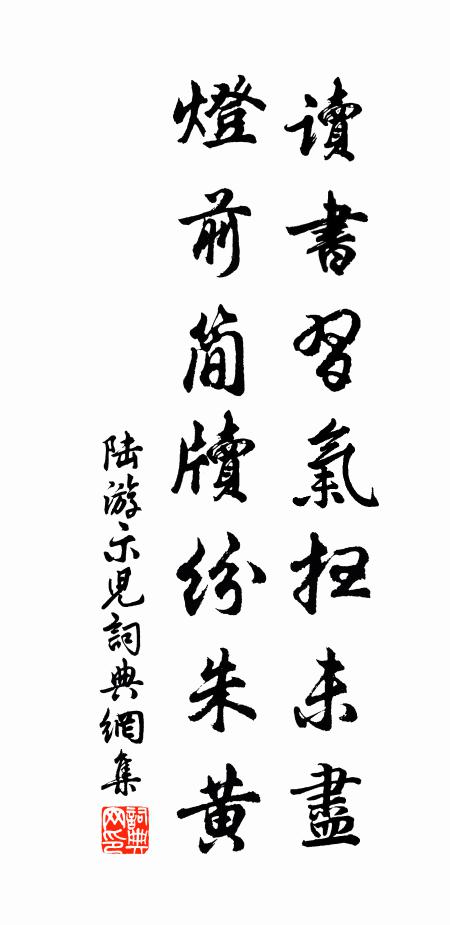 讀書習氣掃未盡
燈前簡牘紛朱黃
陸游示兒詞典網集
詞典網印